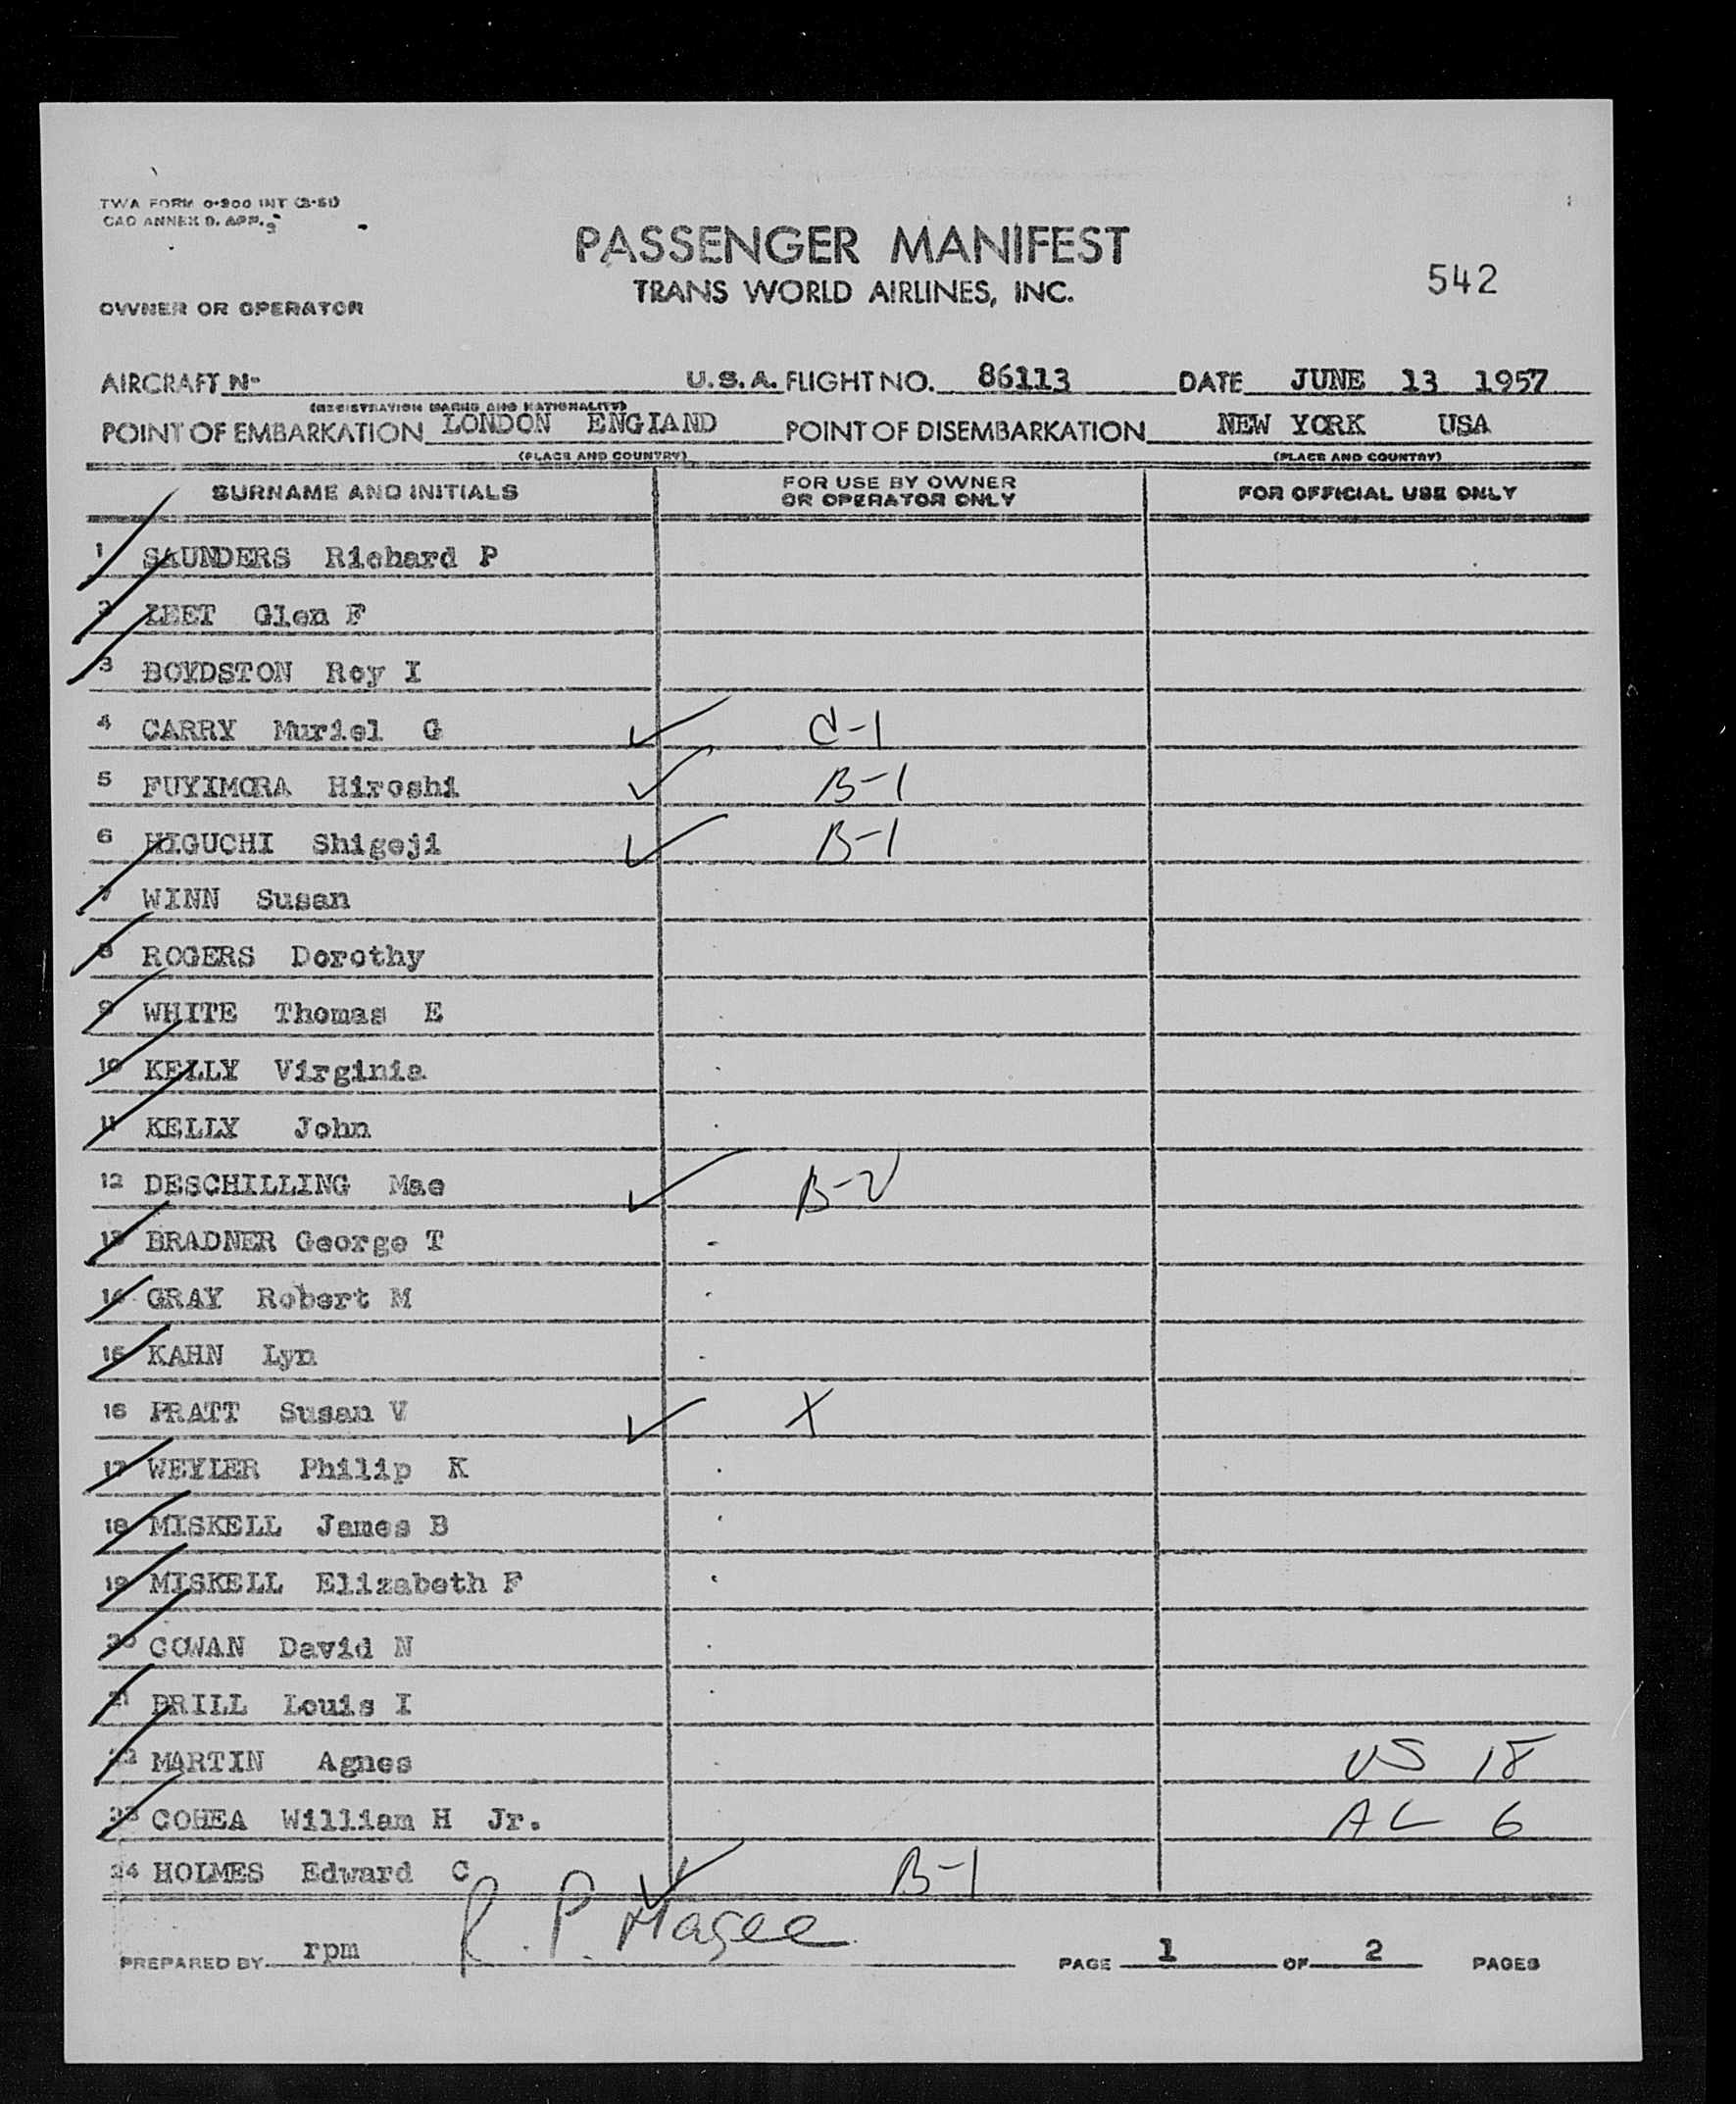 TWA FORM 0-900 INT (3-51)
CAO ANNEX 9. APP. 3
PASSENGER MANIFEST
TRANS WORLD AIRLINES, INC.
542
OWNER OR OPERATOR
AIRCRAFT N- U.S.A. FLIGHT NO. 86113 DATE JUNE 13 1957
(REGISTRATION MARKS AND NATIONALITY)
POINT OF EMBARKATION LONDON ENGLAND POINT OF DISEMBARKATION NEW YORK USA
(PLACE AND COUNTRY) (PLACE AND COUNTRY)
SURNAME AND INITIALS FOR USE BY OWNER OR OPERATOR ONLY FOR OFFICIAL USE ONLY
1 SAUNDERS Richard P
2 LEET Glen F
3 BOYDSTON Roy I
4 CARRY Muriel G ✓ C-1
5 FUYIMORA Hiroshi ✓ B-1
6 HIGUCHI Shigeji ✓ B-1
7 WINN Susan
8 ROGERS Dorothy
9 WHITE Thomas E
10 KELLY Virginia
11 KELLY John
12 DESCHILLING Mae ✓ B-2
13 BRADNER George T
14 GRAY Robert M
15 KAHN Lyn
16 PRATT Susan V ✓ X
17 WEYLER Philip K
18 MISKELL James B
19 MISKELL Elizabeth F
20 COWAN David N
21 BRILL Louis I
22 MARTIN Agnes US 18
23 COHEA William H Jr. AL 6
24 HOLMES Edward C ✓ B-1
PREPARED BY rpm R. P. Magee PAGE 1 OF 2 PAGES